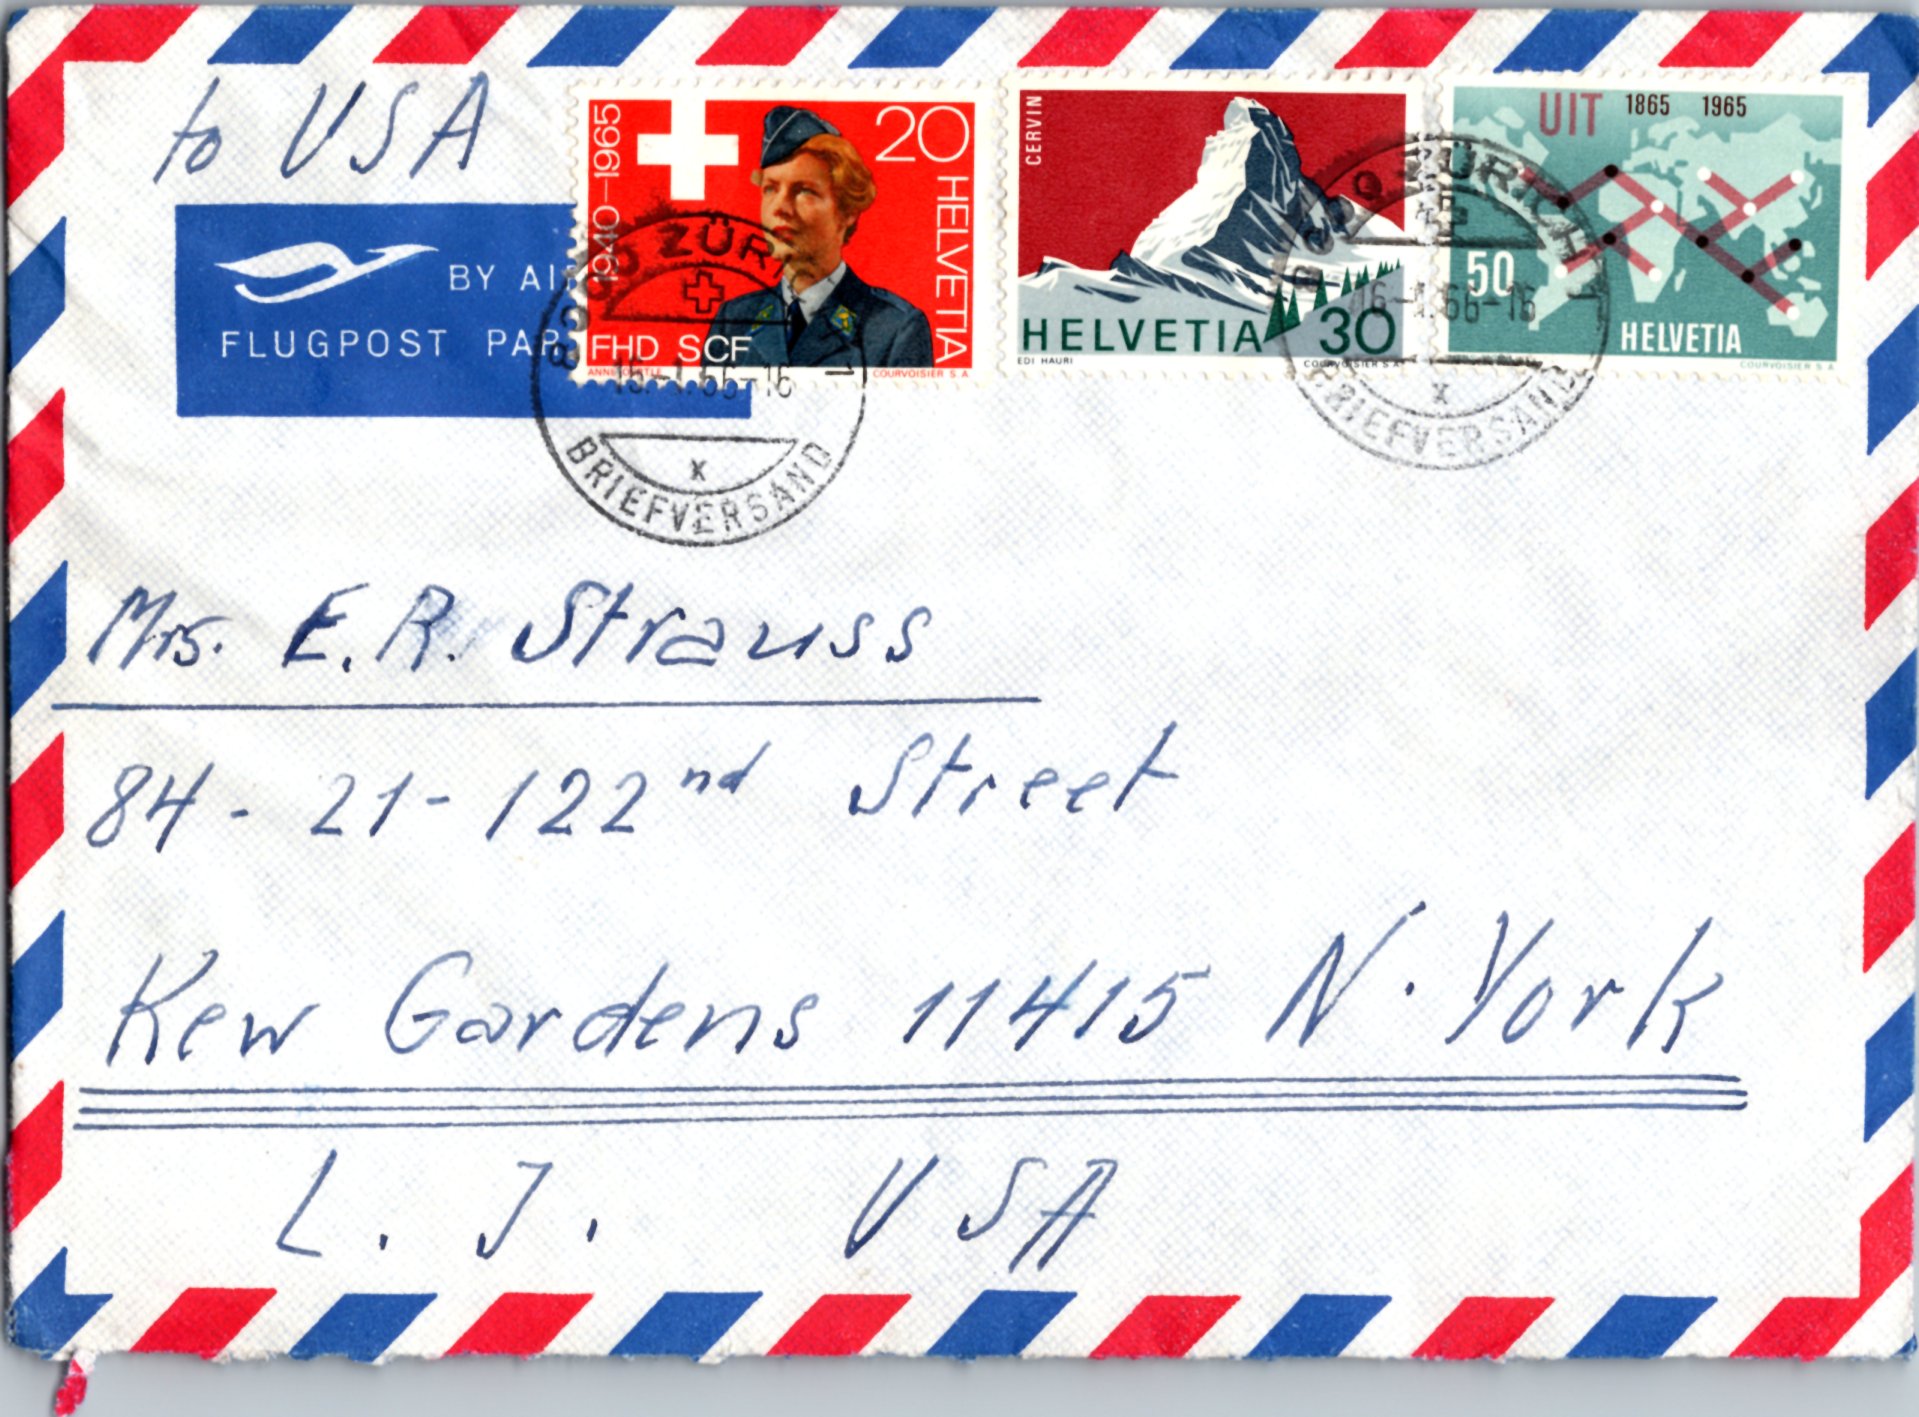 to USA
BY AI
FLUGPOST PAR
1940–1965
20
HELVETIA
FHD SCF
COURVOISIER S A
CERVIN
HELVETIA 30
EDI HAURI
COURVOISIER S A
UIT 1865 1965
50
HELVETIA
COURVOISIER S A
ZÜRI
BRIEFVERSAND
x
ZÜRICH
-1.66-16
x
BRIEFVERSAND
Mrs. E.R. Strauss
84 - 21 - 122nd Street
Kew Gardens 11415 N. York
L. I. USA